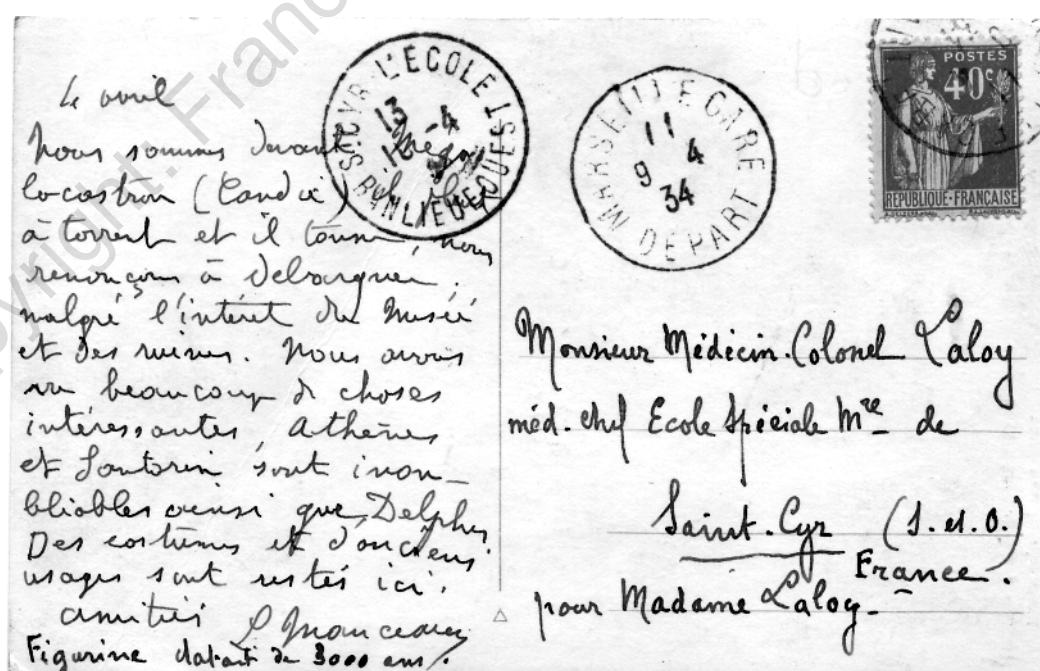 Le avril
Nous sommes devant
locastron (Candie)
à torrent et il tonne, nous
renonçons à débarquer,
malgré l'intéret du Musée
et des ruines. Nous avons
vu beaucoup de choses
intéressantes, Athènes
et Santorin sont inou-
bliables ainsi que Delphes
Des costumes et d'anciens
usages sont restés ici.
amitiés
Figurine datant de 3000 ans.
S.CYR-L'ECOLE
13 -4
BANLIEUE OUEST
MARSEI(1)E GARE
11
9 4
34
DEPART
POSTES
40c
REPUBLIQUE-FRANÇAISE
Monsieur Médecin-Colonel Laloy
méd. chef Ecole Spéciale Mre de
Saint-Cyr (S. et. O.)
France.
pour Madame Laloy-
Copyright. Fran